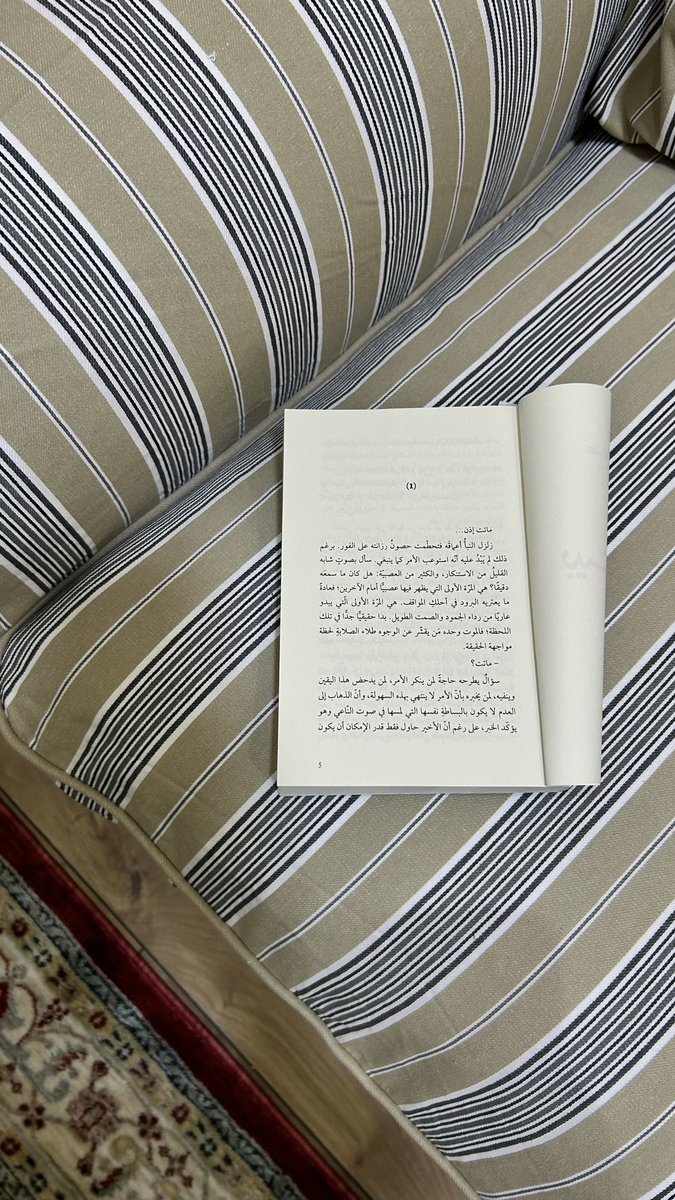 (1)
ماتت إذن.
زلزل النبأُ أعماقَه فتحطّمت حصونُ رزانته على الفور. برغم
ذلك لم يَبْدُ عليه أنّه استوعب الأمر كما ينبغي. سأل بصوتٍ شابه
القليلُ من الاستنكار، والكثير من العصبيّة: هل كان ما سمعَه
دقيقًا؟ هي المرّة الأولى التي يظهر فيها عصبيًّا أمام الآخرين؛ فعادةً
ما يعتريه البرود في أحلكِ المواقف. هي المرّة الأولى الّتي يبدو
عاريًا من رداء الجمود والصمت الطويل. بدا حقيقيًّا جدًّا في تلك
اللحظة؛ فالموت وحده مَن يقشّر عن الوجوه طلاء الصلابةِ لحظة
مواجهة الحقيقة.
– ماتت؟
سؤالٌ يطرحه حاجةً لمن ينكر الأمر، لمن يدحض هذا اليقين
وينفيه، لمن يخبره بأنّ الأمر لا ينتهي بهذه السهولة، وأنّ الذهاب إلى
العدم لا يكون بالبساطةِ نفسها التي لمسها في صوت النّاعي وهو
يؤكّد الخبر، على رغم أنّ الأخير حاول فقط قدر الإمكان أن يكون
5